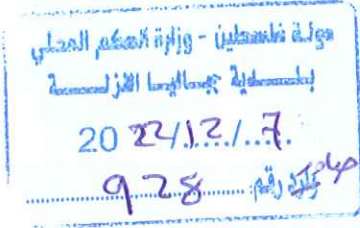 دولة فلسطين - وزارة الحكم المحلي
بلـــدية جبـاليـا النزلـــة
20 22/12/7
صادر رقم: 928